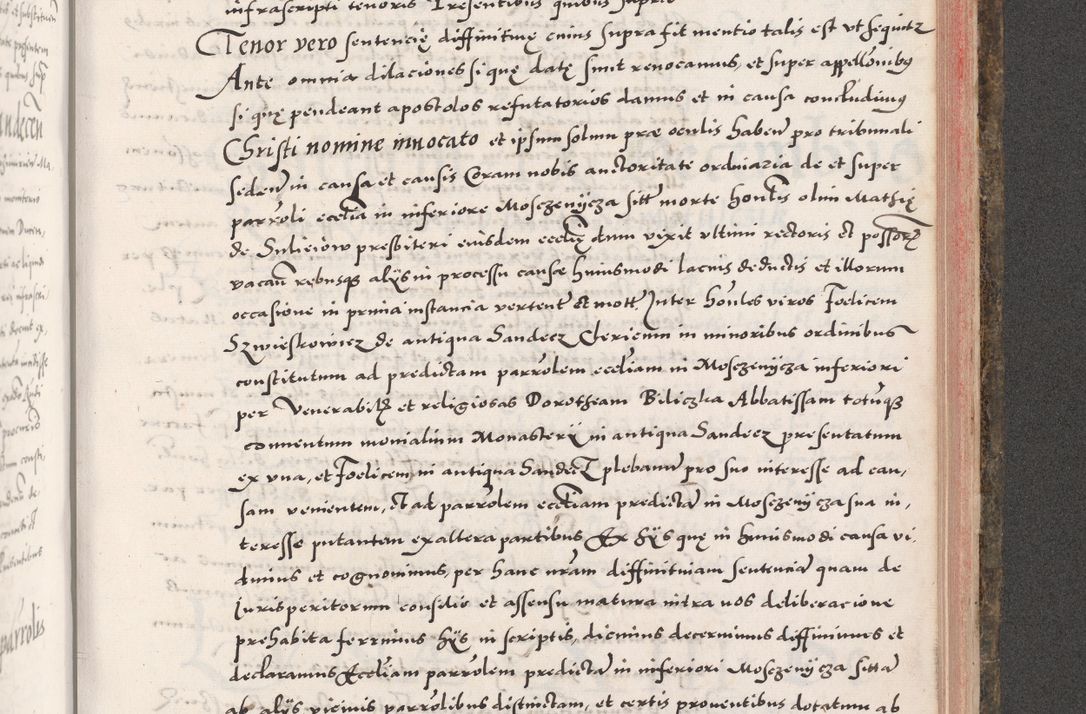 infrascripti tenoris Presentibus quibus supra
Tenor vero sentencię diffinitivę cuius supra fit mentio talis est ut sequitz
Ante omnia dilaciones si quę datę sunt revocamus, et super appellonibus
si quę pendeant apostolos refutatorios damus et in causa concludimus
Christi nomine invocato et ipsum solum præ oculis habeñ pro tribunali
sedeñ in causa et causis Coram nobis auctoritate ordinaria de et super
parroli eccłia in inferiore Mosczenycza sitt morte honłis olim Mathię
de Suliciow presbiteri eiusdem ecclię dum vixit ultimi rectoris et possorz
vacañ rebusqз alys in processu causæ huiusmodi lacius deductis et illorum
occasione in prima instancia verteñt et mott Inter hoñles viros Foelicem
Szwieskowicz de antiqua Sandecz Clericum in minoribus ordinibus
constitutum ad predictam parrolem eccliam in Mosczenycza inferiori
per Venerabilz et religiosas Dorotheam Biliczka Abbatissam totuqз
conventum monialium Monastery in antiqua Sandecz presentatum
ex una, et Foelicem in antiqua Sandecz plebanum pro suo interesse ad cau,
sam venientem, et ad parrolem eccłiam predictã in Mosczenycza sua in,
teresse putantem ex altera partibus Ex hys quę in huiusmodi causa vi,
dimus et cognovimus, per hanc nram diffinitivam sentenciã quam de
jurisperitorum consilio et assensu matura intra nos deliberacione
prehabita ferrimus hys in scriptis, dicimus decernimus diffinimus et
declaramus Eccliam parrolem predictã in inferiori Mosczenycza sittã
ab alys vicinis parrolibus distinctam, et certis proventibus dotatum ab